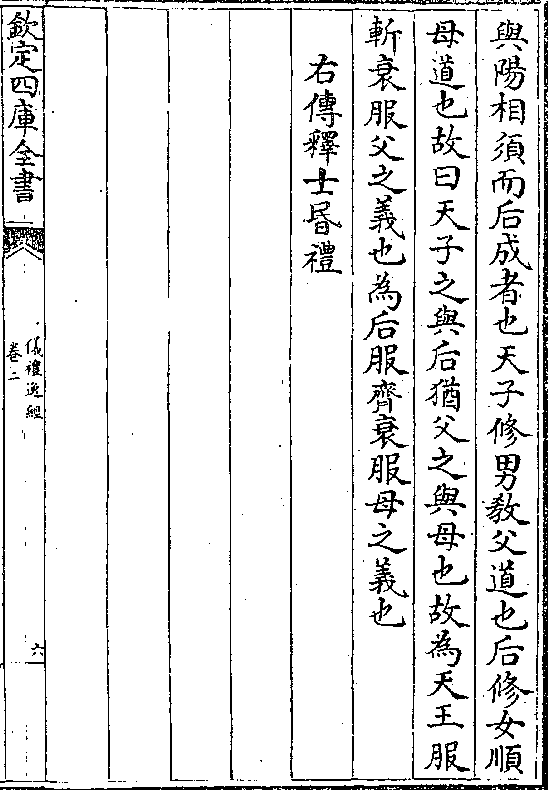 與陽相須而后成者也天子修男敎父道也后修女順
母道也故曰天子之與后猶父之與母也故為天王服
斬衰服父之義也為后服齊衰服母之義也
右傳釋士昏禮
欽定四庫全書
儀禮逸經
卷二
六